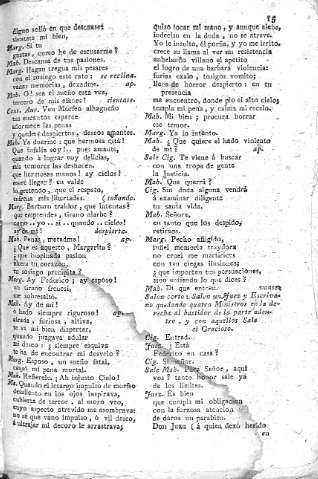 15
digno sólio en que descanse
mi bien,
Marg. Si tu
gustas, como he de escusarme?
Mab. Descansa de tus pasiones.
Marg. Hagan tregua mis pesares
con el sosiego este rato: se reclina.
vanas memorias, dexadme. ap.
Mab. O! sea el sueño esta vez,
tercero de mis ansias! sientase.
Cant. Ven Morfeo alhagueño
tus encantos esparce
adormece las penas
y queden despiertos, deseos amantes.
Mab. Ya duerme: que hermosa está!
Que infeliz soy!.. pues amante,
quando á lograr voy delicias,
mis temores las deshacen.
que hermosas manos! ay cielos!
osaré llegar? en vano
lo pretendo, que el respeto,
mis libertades. soñando.
Marg. Barbaro traidor, que intentas?
que emprendes, tirano alarbe?
.. yo .. si .. quando .. cielos!
ay de mi! despierta.
Mab. Penas, matadme! ap.
¿Que es aquesto, Margarita?
¿que
altera tu corazon,
tu sosiego precipita?
Marg. Ay Federico! ay esposo!
su tirano frenesí,
me sobresaltó.
Mab. Ay de mi!
ó hado siempre riguroso! ap.
airada, furiosa, altiva,
te vi mi bien despertar,
quando juzgava adular
mi deseo; ¿siempre esquiva
te ha de encontrar mi desvelo?
Marg. Esposo, un sueño fatal,
causó mi pena mortal.
Mab. Refierelo. ¡Ah injusto Cielo!
Ma. Quando el letargo impulso de morfeo
en los ojos inspirava,
cubierta de terror, al moro veo,
cuyo aspecto atrevido me asombrava;
no sé que vano impulso, ó vil deseo,
á ultrajar mi decoro le arrastrava;
quiso tocar mi mano, y aunque aleve,
indeciso en la duda, no se atreve.
Yo le insulto, él porfia, y yo me irrito,
crece su llama al ver mi resistencia
anhela villano el apetito
el logro de una barbara violencia:
furias exalo, tosigos vomito;
llena de horror despierto: en tu
presencia
me encuentro, donde pio el alto cielo,
templa mi pena, y calma mi recelo.
Mab. Mi bien; procura borrar
ese temor.
Marg. Ya lo intento.
Mab. ¡Que quiere el hado violento
de mi? ap.
Sale Cig. Te viene á buscar
con una tropa de gente
la Justicia.
Mab. Que querrá?
Cig. Sin duda alguna vendrá
á examinar diligente
tu santa vida.
Mab. Señora,
en tanto que los despido,
retiraos.
Marg. Pecho afligido,
infiel memoria traydora
no cruel me martirices
con tan ciegas ilusiones;
¿que importan tus persuaciones,
sino entiendo lo que dices?
Mab. Di que entren. vanse
Salon corto: Salen un Juez y Escriva-
no quedando quatro Ministros en la de-
recha al bastidor de la parte aden-
tro, y con aquellos Sale
el Gracioso.
Cig. Entrad.
Juez. ¿Está
Federico en casa?
Cig. Si señor.
Sale Mab. Pues Señor, aqui
vos? tanto honor sale ya
de los limites.
Juez. Es bien
que cumpla mi obligacion
con la forzosa atencion
de daros un parabien.
Don Juan (á quien dexó herido
en